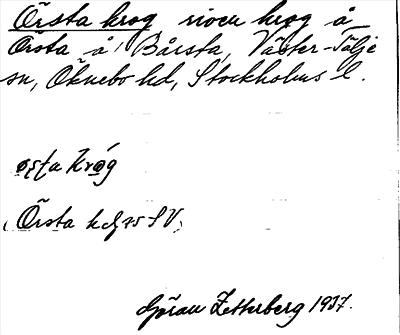 Örsta krog riven krog å
Örsta å, Bårsta, Väster-Tälje
sn, Öknebo hd, Stockholms l.
østa krǿg
(Örsta
Göran Zetterberg 1937.